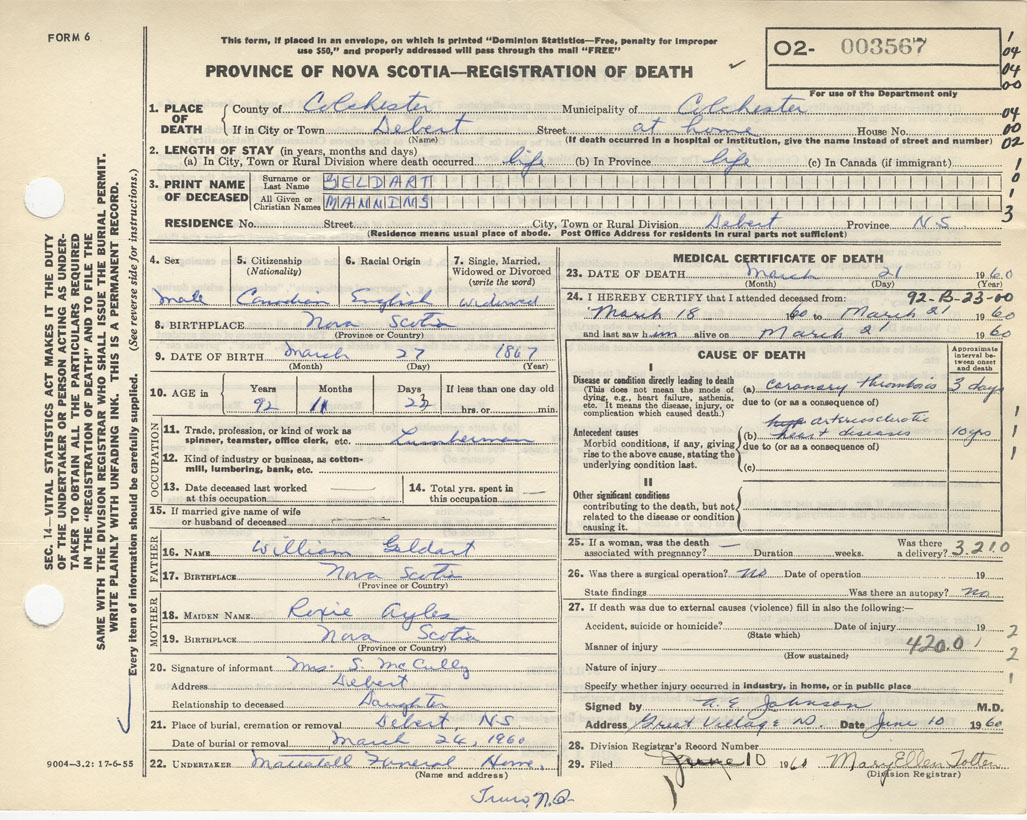 FORM 6
This form, if placed in an envelope, on which is printed "Dominion Statistics—Free, penalty for improper
use $50," and properly addressed will pass through the mail "FREE"
PROVINCE OF NOVA SCOTIA—REGISTRATION OF DEATH
02- 003567
For use of the Department only
1 04 04 00
04 00 02
1 0 1 3
SEC. 14—VITAL STATISTICS ACT MAKES IT THE DUTY
OF THE UNDERTAKER OR PERSON ACTING AS UNDER-
TAKER TO OBTAIN ALL THE PARTICULARS REQUIRED
IN THE "REGISTRATION OF DEATH" AND TO FILE THE
SAME WITH THE DIVISION REGISTRAR WHO SHALL ISSUE THE BURIAL PERMIT.
WRITE PLAINLY WITH UNFADING INK. THIS IS A PERMANENT RECORD.
Every item of information should be carefully supplied. (See reverse side for instructions.)
1. PLACE OF DEATH
County of Colchester Municipality of Colchester
If in City or Town Debert Street at home House No.
(Name) (If death occurred in a hospital or institution, give the name instead of street and number)
2. LENGTH OF STAY (in years, months and days)
(a) In City, Town or Rural Division where death occurred life (b) In Province life (c) In Canada (if immigrant)
3. PRINT NAME OF DECEASED
Surname or Last Name GELDART
All Given or Christian Names MANNIMS
RESIDENCE No. Street City, Town or Rural Division Debert Province N S
(Residence means usual place of abode. Post Office Address for residents in rural parts not sufficient)
4. Sex
male
5. Citizenship
(Nationality)
Canadian
6. Racial Origin
English
7. Single, Married,
Widowed or Divorced
(write the word)
widowed
8. BIRTHPLACE Nova Scotia
(Province or Country)
9. DATE OF BIRTH March 27 1867
(Month) (Day) (Year)
10. AGE in Years Months Days If less than one day old
92 11 23 hrs. or min.
OCCUPATION
11. Trade, profession, or kind of work as
spinner, teamster, office clerk, etc. Lumberman
12. Kind of industry or business, as cotton-
mill, lumbering, bank, etc.
13. Date deceased last worked
at this occupation
14. Total yrs. spent in
this occupation
15. If married give name of wife
or husband of deceased
FATHER
16. NAME William Geldart
17. BIRTHPLACE Nova Scotia
(Province or Country)
MOTHER
18. MAIDEN NAME Roxie Ayles
19. BIRTHPLACE Nova Scotia
(Province or Country)
20. Signature of informant Mrs. S. McCully
Address Debert
Relationship to deceased Daughter
21. Place of burial, cremation or removal Debert, N S
Date of burial or removal March 24, 1960
22. UNDERTAKER Mattatall Funeral Home,
(Name and address)
Truro, N.S.
9004—3.2: 17-6-55
MEDICAL CERTIFICATE OF DEATH
23. DATE OF DEATH March 21 1960
(Month) (Day) (Year)
24. I HEREBY CERTIFY that I attended deceased from: 92-B-23-00
March 18 60 to March 21 1960
and last saw him alive on March 21 1960
CAUSE OF DEATH
Approximate
interval be-
tween onset
and death
I
Disease or condition directly leading to death
(This does not mean the mode of
dying, e.g., heart failure, asthenia,
etc. It means the disease, injury, or
complication which caused death.)
(a) coronary thrombosis 3 days
due to (or as a consequence of)
Antecedent causes
Morbid conditions, if any, giving
rise to the above cause, stating the
underlying condition last.
arteriosclerotic
(b) heart diseases 10 yrs
due to (or as a consequence of)
(c)
II
Other significant conditions
contributing to the death, but not
related to the disease or condition
causing it.
1 1 1
25. If a woman, was the death
associated with pregnancy? Duration weeks. Was there
a delivery? 3.210
26. Was there a surgical operation? no Date of operation 19
State findings Was there an autopsy? no
27. If death was due to external causes (violence) fill in also the following:—
Accident, suicide or homicide? Date of injury 19 2
(State which)
Manner of injury 420.0 1
(How sustained) 2
Nature of injury 1
Specify whether injury occurred in industry, in home, or in public place
Signed by A. E. Johnson M.D.
Address Great Village N.S. Date June 10 1960
28. Division Registrar's Record Number
29. Filed June 10 1960 Mary Ellen Totten
(Division Registrar)